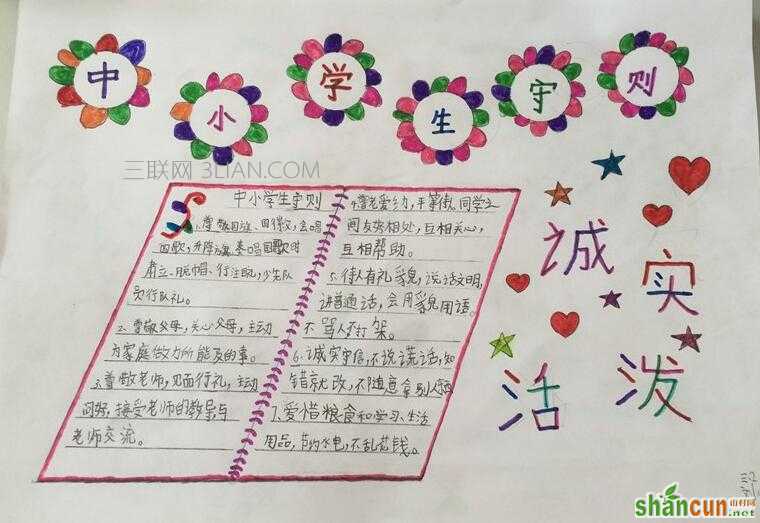 中小学生守则
三联网 3LIAN.COM
中小学生守则
1.尊敬国旗、国徽,会唱
国歌,升降旗、奏唱国歌时
肃立、脱帽、行注目礼,少先队
员行队礼。
2.尊敬父母,关心父母,主动
为家庭做力所能及的事。
3.尊敬老师,见面行礼,主动
问好,接受老师的教导与
老师交流。
4.尊老爱幼,平等待 同学之
间友好相处,互相关心,
互相帮助。
5.待人有礼貌,说话文明,
讲普通话,会用礼貌用语。
不骂人不打架。
6.诚实守信,不说谎话,知
错就改,不随意拿别人
7.爱惜粮食和学习、生活
用品,节约水电,不乱花钱。
诚实
活泼
shancun
.net